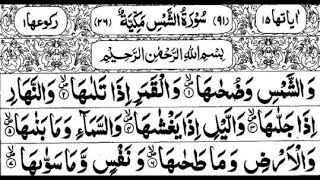 اٰيَاتُهَا ١٥ (٩١) سُوْرَةُ الشَّمْسِ مَكِّيَّةٌ (٢٦) رُكُوْعُهَا ١
بِسْمِ اللّٰهِ الرَّحْمٰنِ الرَّحِيْمِ
وَالشَّمْسِ وَضُحٰىهَا ۙ١ وَالْقَمَرِ اِذَا تَلٰىهَا ۙ٢ وَالنَّهَارِ
اِذَا جَلّٰىهَا ۙ٣ وَالَّيْلِ اِذَا يَغْشٰىهَا ۙ٤ وَالسَّمَآءِ وَمَا بَنٰىهَا ۙ٥
وَالْاَرْضِ وَمَا طَحٰىهَا ۙ٦ وَنَفْسٍ وَّمَا سَوّٰىهَا ۙ٧